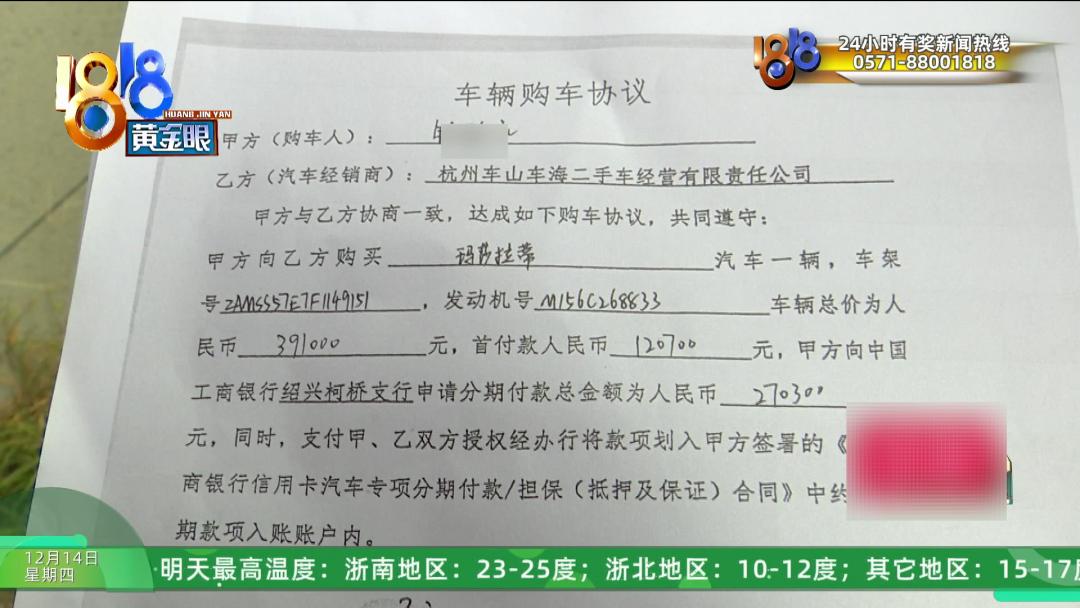 1818
HUANG JIN YAN
黄金眼
1818
24小时有奖新闻热线
0571-88001818
车辆购车协议
甲方（购车人）：
乙方（汽车经销商）：杭州车山车海二手车经营有限责任公司
甲方与乙方协商一致，达成如下购车协议，共同遵守：
甲方向乙方购买 玛莎拉蒂 汽车一辆，车架
号ZAMSS57E7F1149151，发动机号M156C268833 车辆总价为人
民币 391000 元，首付款人民币 120700 元，甲方向中国
工商银行绍兴柯桥支行申请分期付款总金额为人民币 270300
元，同时，支付甲、乙双方授权经办行将款项划入甲方签署的《
商银行信用卡汽车专项分期付款/担保（抵押及保证）合同》中约
期款项入账账户内。
12月14日
星期四
明天最高温度：浙南地区：23-25度；浙北地区：10-12度；其它地区：15-17度